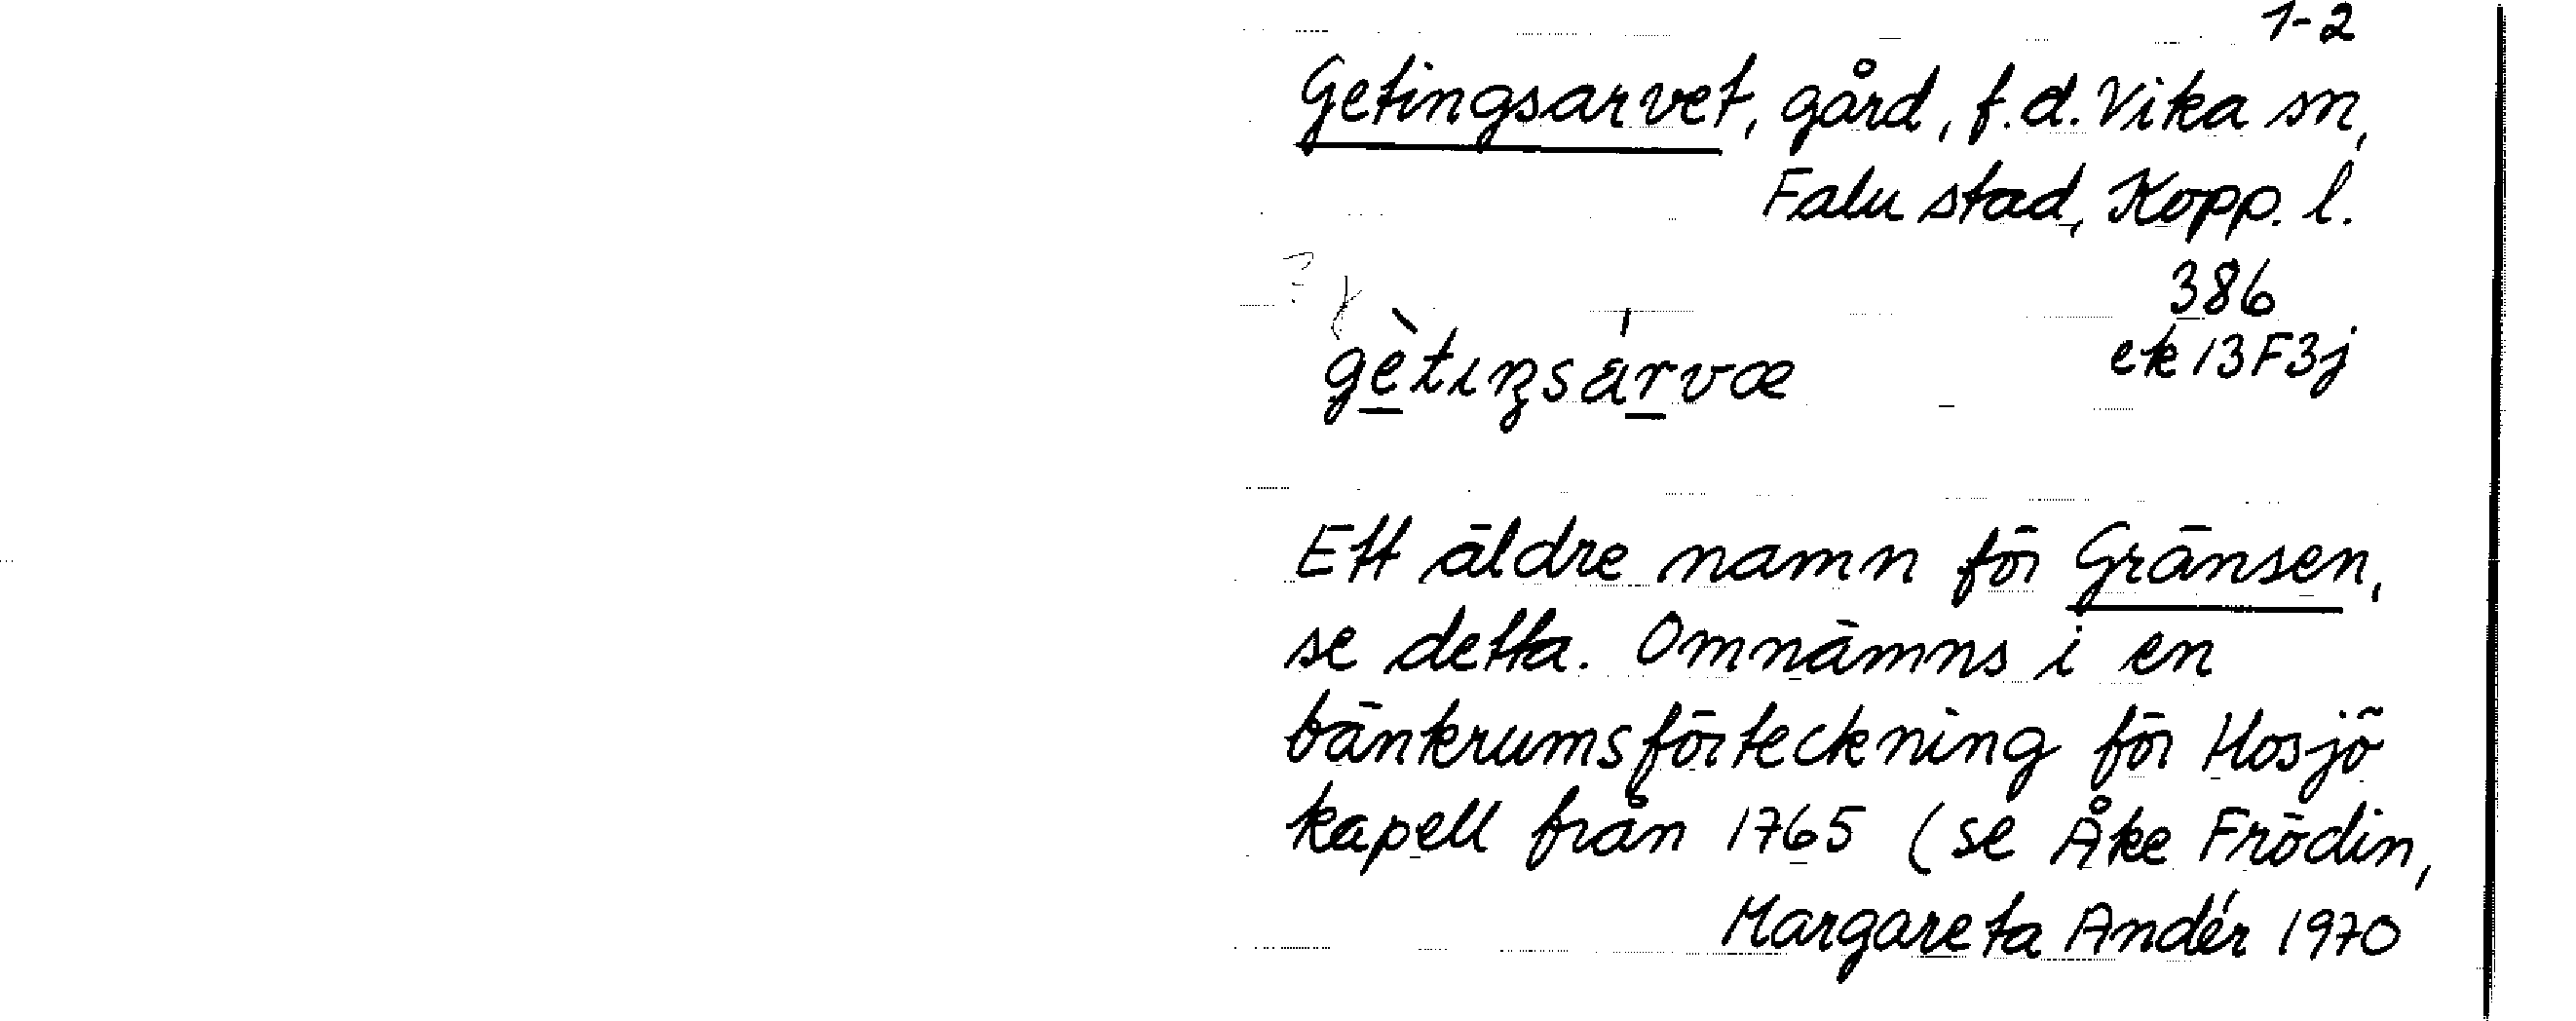 1-2
Getingsarvet, gård, f.d. Vika sn,
Falu stad, Kopp. l.
386
ek 13F3j
Ett äldre namn för Gränsen,
se detta. Omnämns i en
bänkrumsförteckning för Hosjö
kapell från 1765 (se Åke Frödin,
Margareta Andér 1970